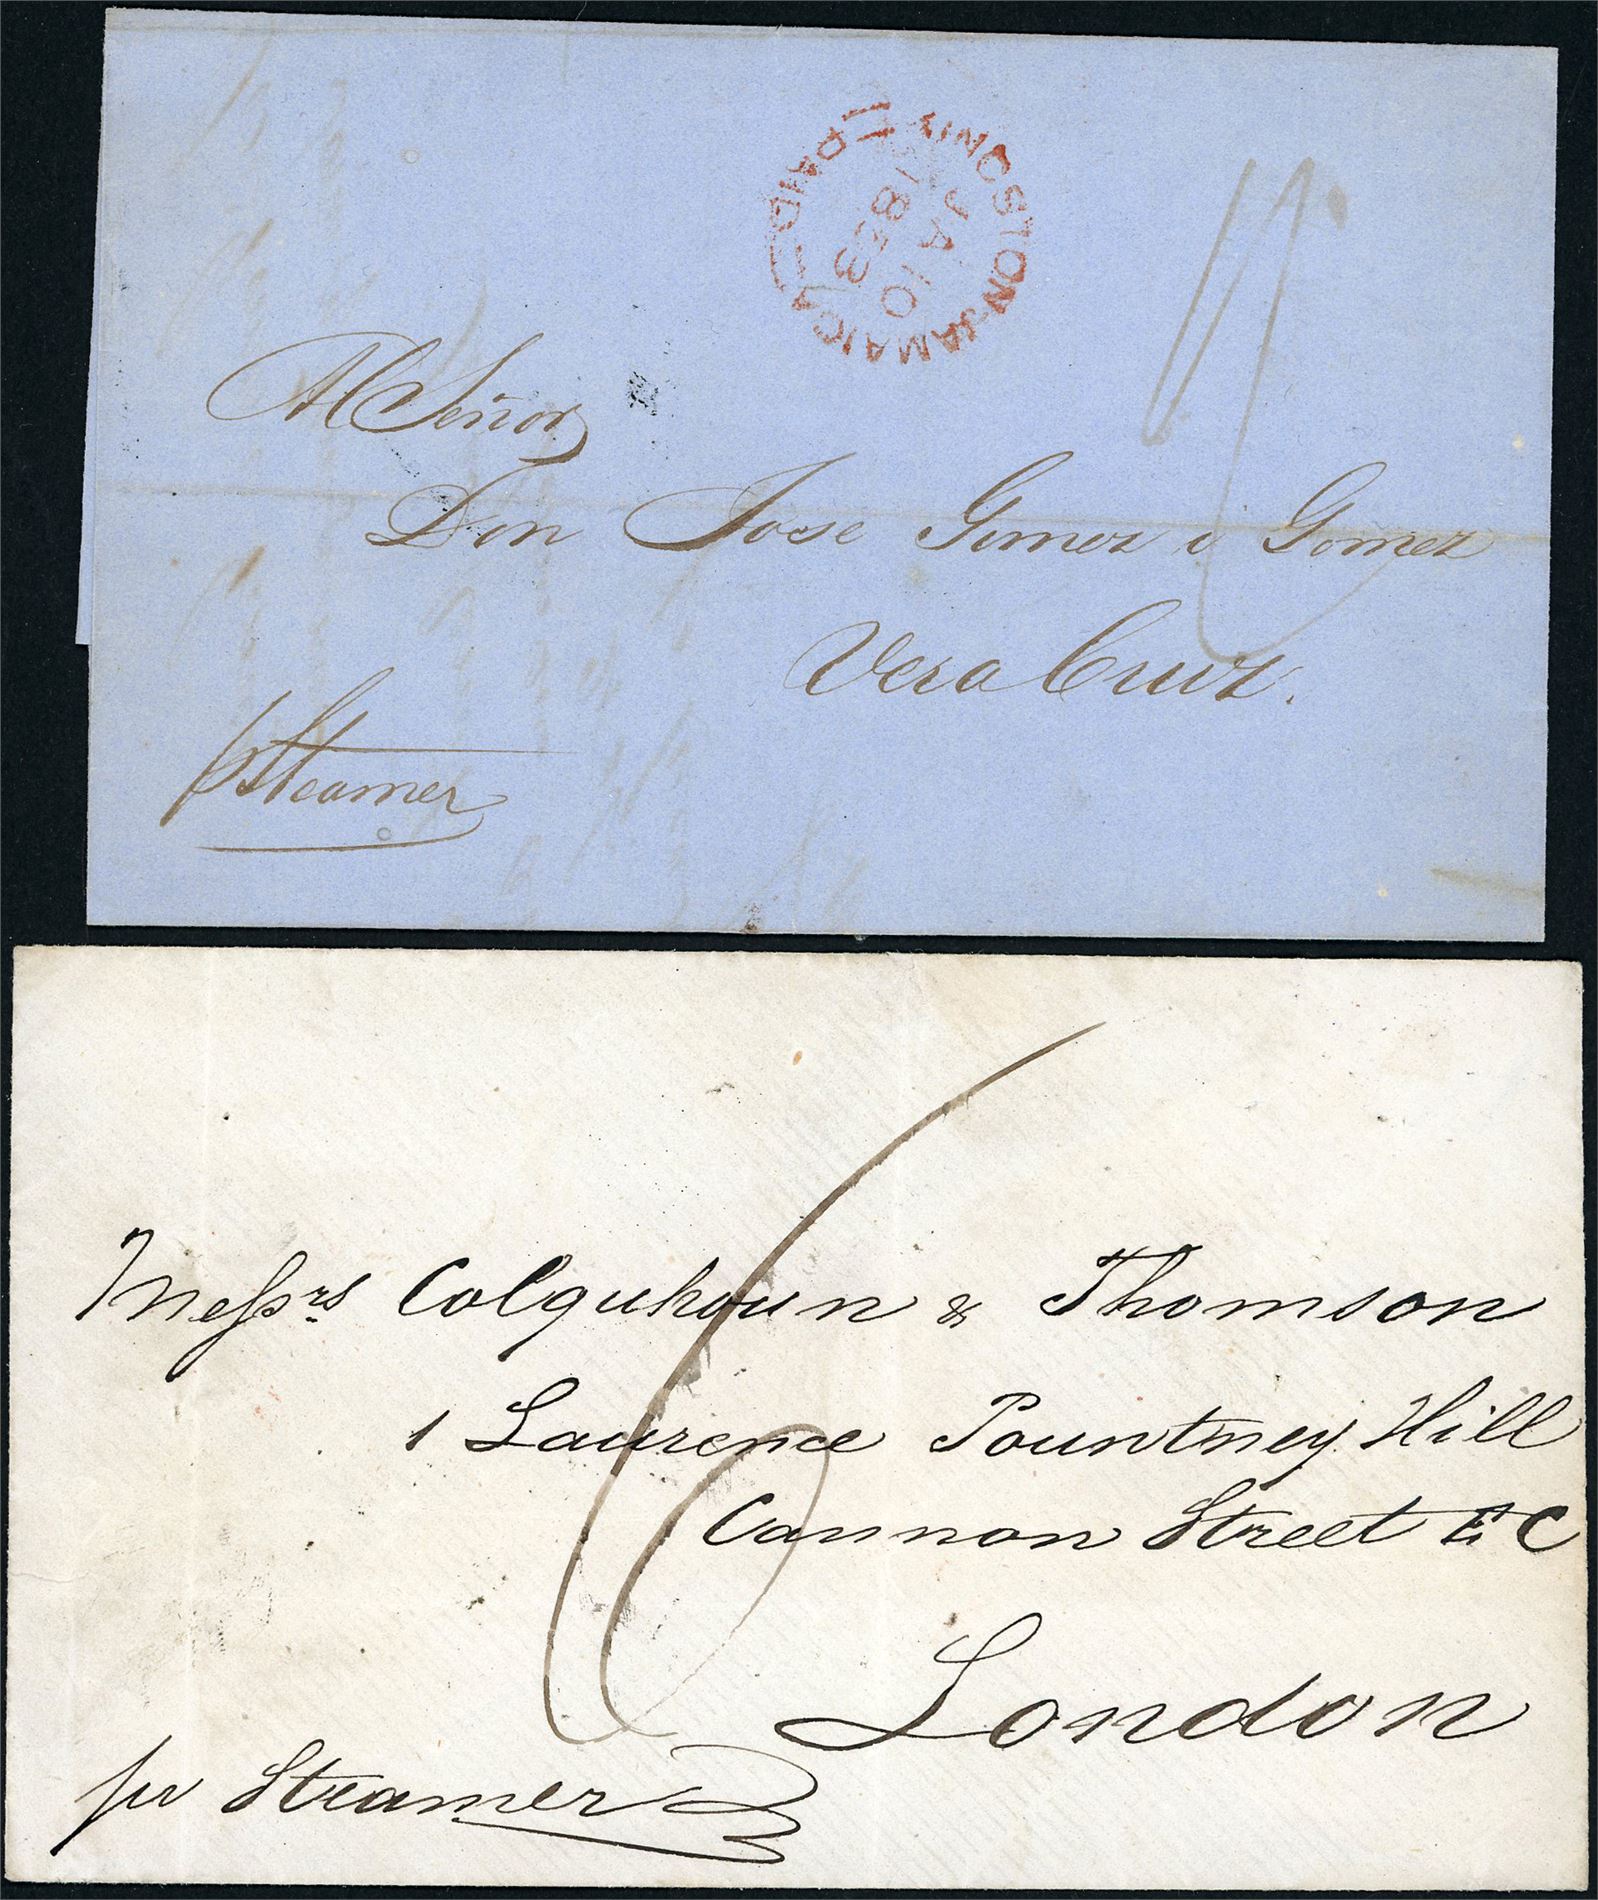 PAID
KINGSTON-JAMAICA
JA 10
1853
Al Señor
Don Jose Gomez i Gomez
Vera Cruz.
p Steamer
Messrs Colquhoun & Thomson
1 Laurence Pountney Hill
Cannon Street E C
London
per Steamer